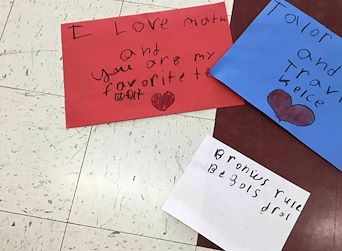 I Love math
and
You are my
favorite te
Talor
and
Travi
Kelce
Bronws rule
Begals
drol